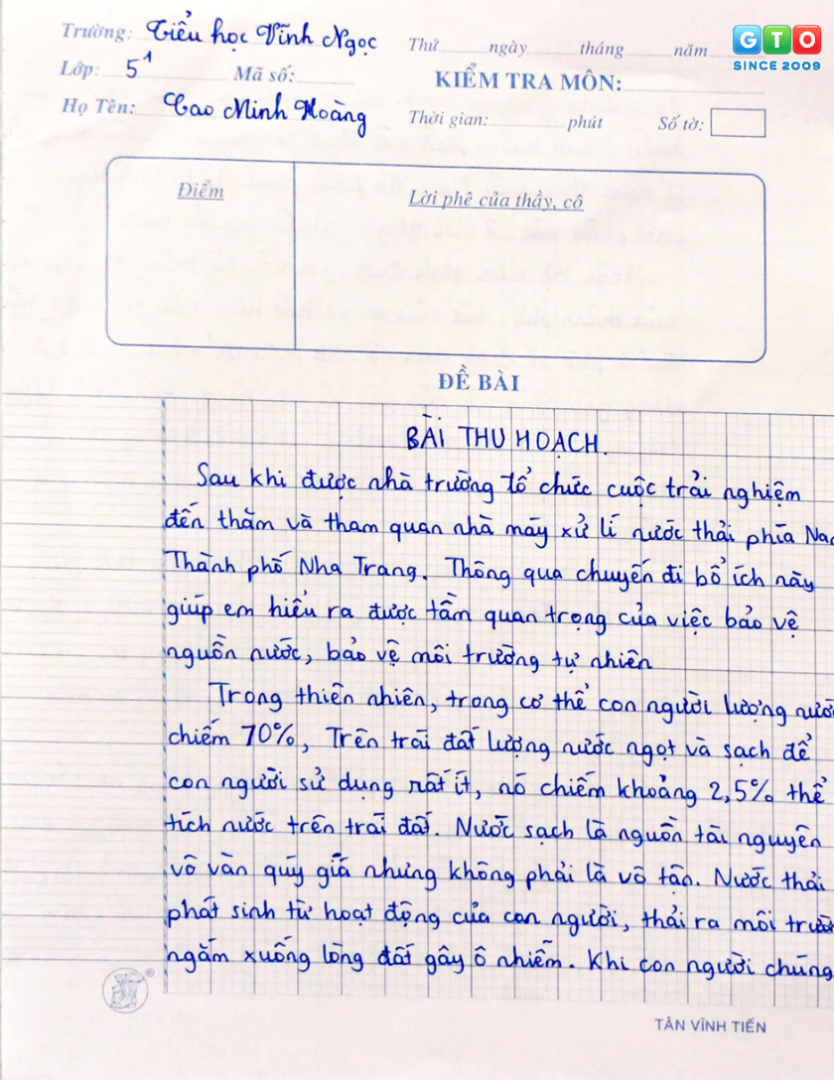 Trường: Tiểu học Vĩnh Ngọc
Thứ ngày tháng năm
GTO
SINCE 2009
Lớp: 5¹ Mã số:
KIỂM TRA MÔN:
Họ Tên: Cao Minh Hoàng
Thời gian: phút Số tờ:
Điểm
Lời phê của thầy, cô
ĐỀ BÀI
BÀI THU HOẠCH.
Sau khi được nhà trường tổ chức cuộc trải nghiệm
đến thăm và tham quan nhà máy xử lí nước thải phía Na
Thành phố Nha Trang. Thông qua chuyến đi bổ ích này
giúp em hiểu ra được tầm quan trọng của việc bảo vệ
nguồn nước, bảo vệ môi trường tự nhiên
Trong thiên nhiên, trong cơ thể con người lượng nướ
chiếm 70%, Trên trái đất lượng nước ngọt và sạch để
con người sử dụng rất ít, nó chiếm khoảng 2,5% thể
tích nước trên trái đất. Nước sạch là nguồn tài nguyên
vô vàn quý giá nhưng không phải là vô tận. Nước thải
phát sinh từ hoạt động của con người, thải ra môi trườ
ngấm xuống lòng đất gây ô nhiễm. Khi con người chúng
®
TÂN VĨNH TIẾN